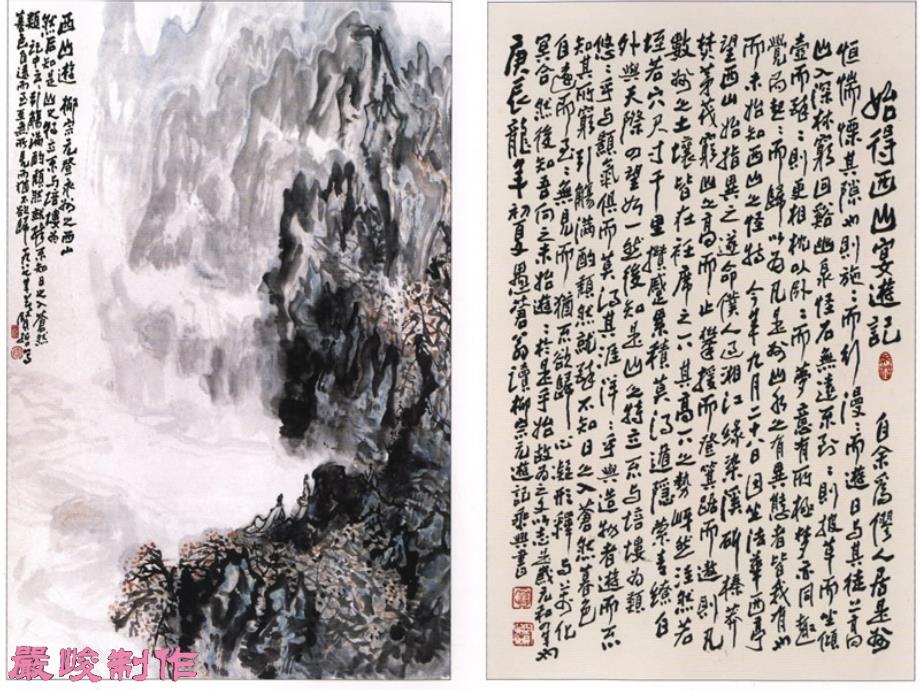 西山遊 柳宗元登永州之西山
然后知是山之特立不与培塿为
類記中云引觴滿酌頹然就醉不知日之入蒼然
暮色自遠而至至無所見而猶不欲歸
始得西山宴遊記
自余爲僇人居是州
恒惴慄其隙也則施〻而行漫〻而遊日与其徒上高
山入深林窮迴谿幽泉怪石無遠不到〻則披草而坐傾
壺而醉〻則更相枕以卧〻而夢意有所極夢亦同趣
覺而起〻而歸以爲凡是州山水之有異態者皆我有也
而未始知西山之怪特今年九月二十八日因坐法華西亭
望西山始指異之遂命僕人過湘江緣染溪斫榛莽
焚茅茷窮山之高而止攀援而登箕踞而遨則凡
數州之土壤皆在衽席之下其高下之勢岈然洼然若
垤若穴尺寸千里攢蹙累積莫得遁隱縈青繚白
外與天際四望如一然後知是山之特立不与培塿为類
悠〻乎与顥氣俱而莫得其涯洋〻乎與造物者遊而不
知其所窮引觴滿酌頹然就醉不知日之入蒼然暮色
自遠而至〻無見而猶不欲歸心凝形釋与萬化
冥合然後知吾向之未始遊〻於是乎始故爲之文以志是歲元和四年也
庚辰龍年初夏愚蒼翁讀柳宗元遊記乘興書
嚴峻制作